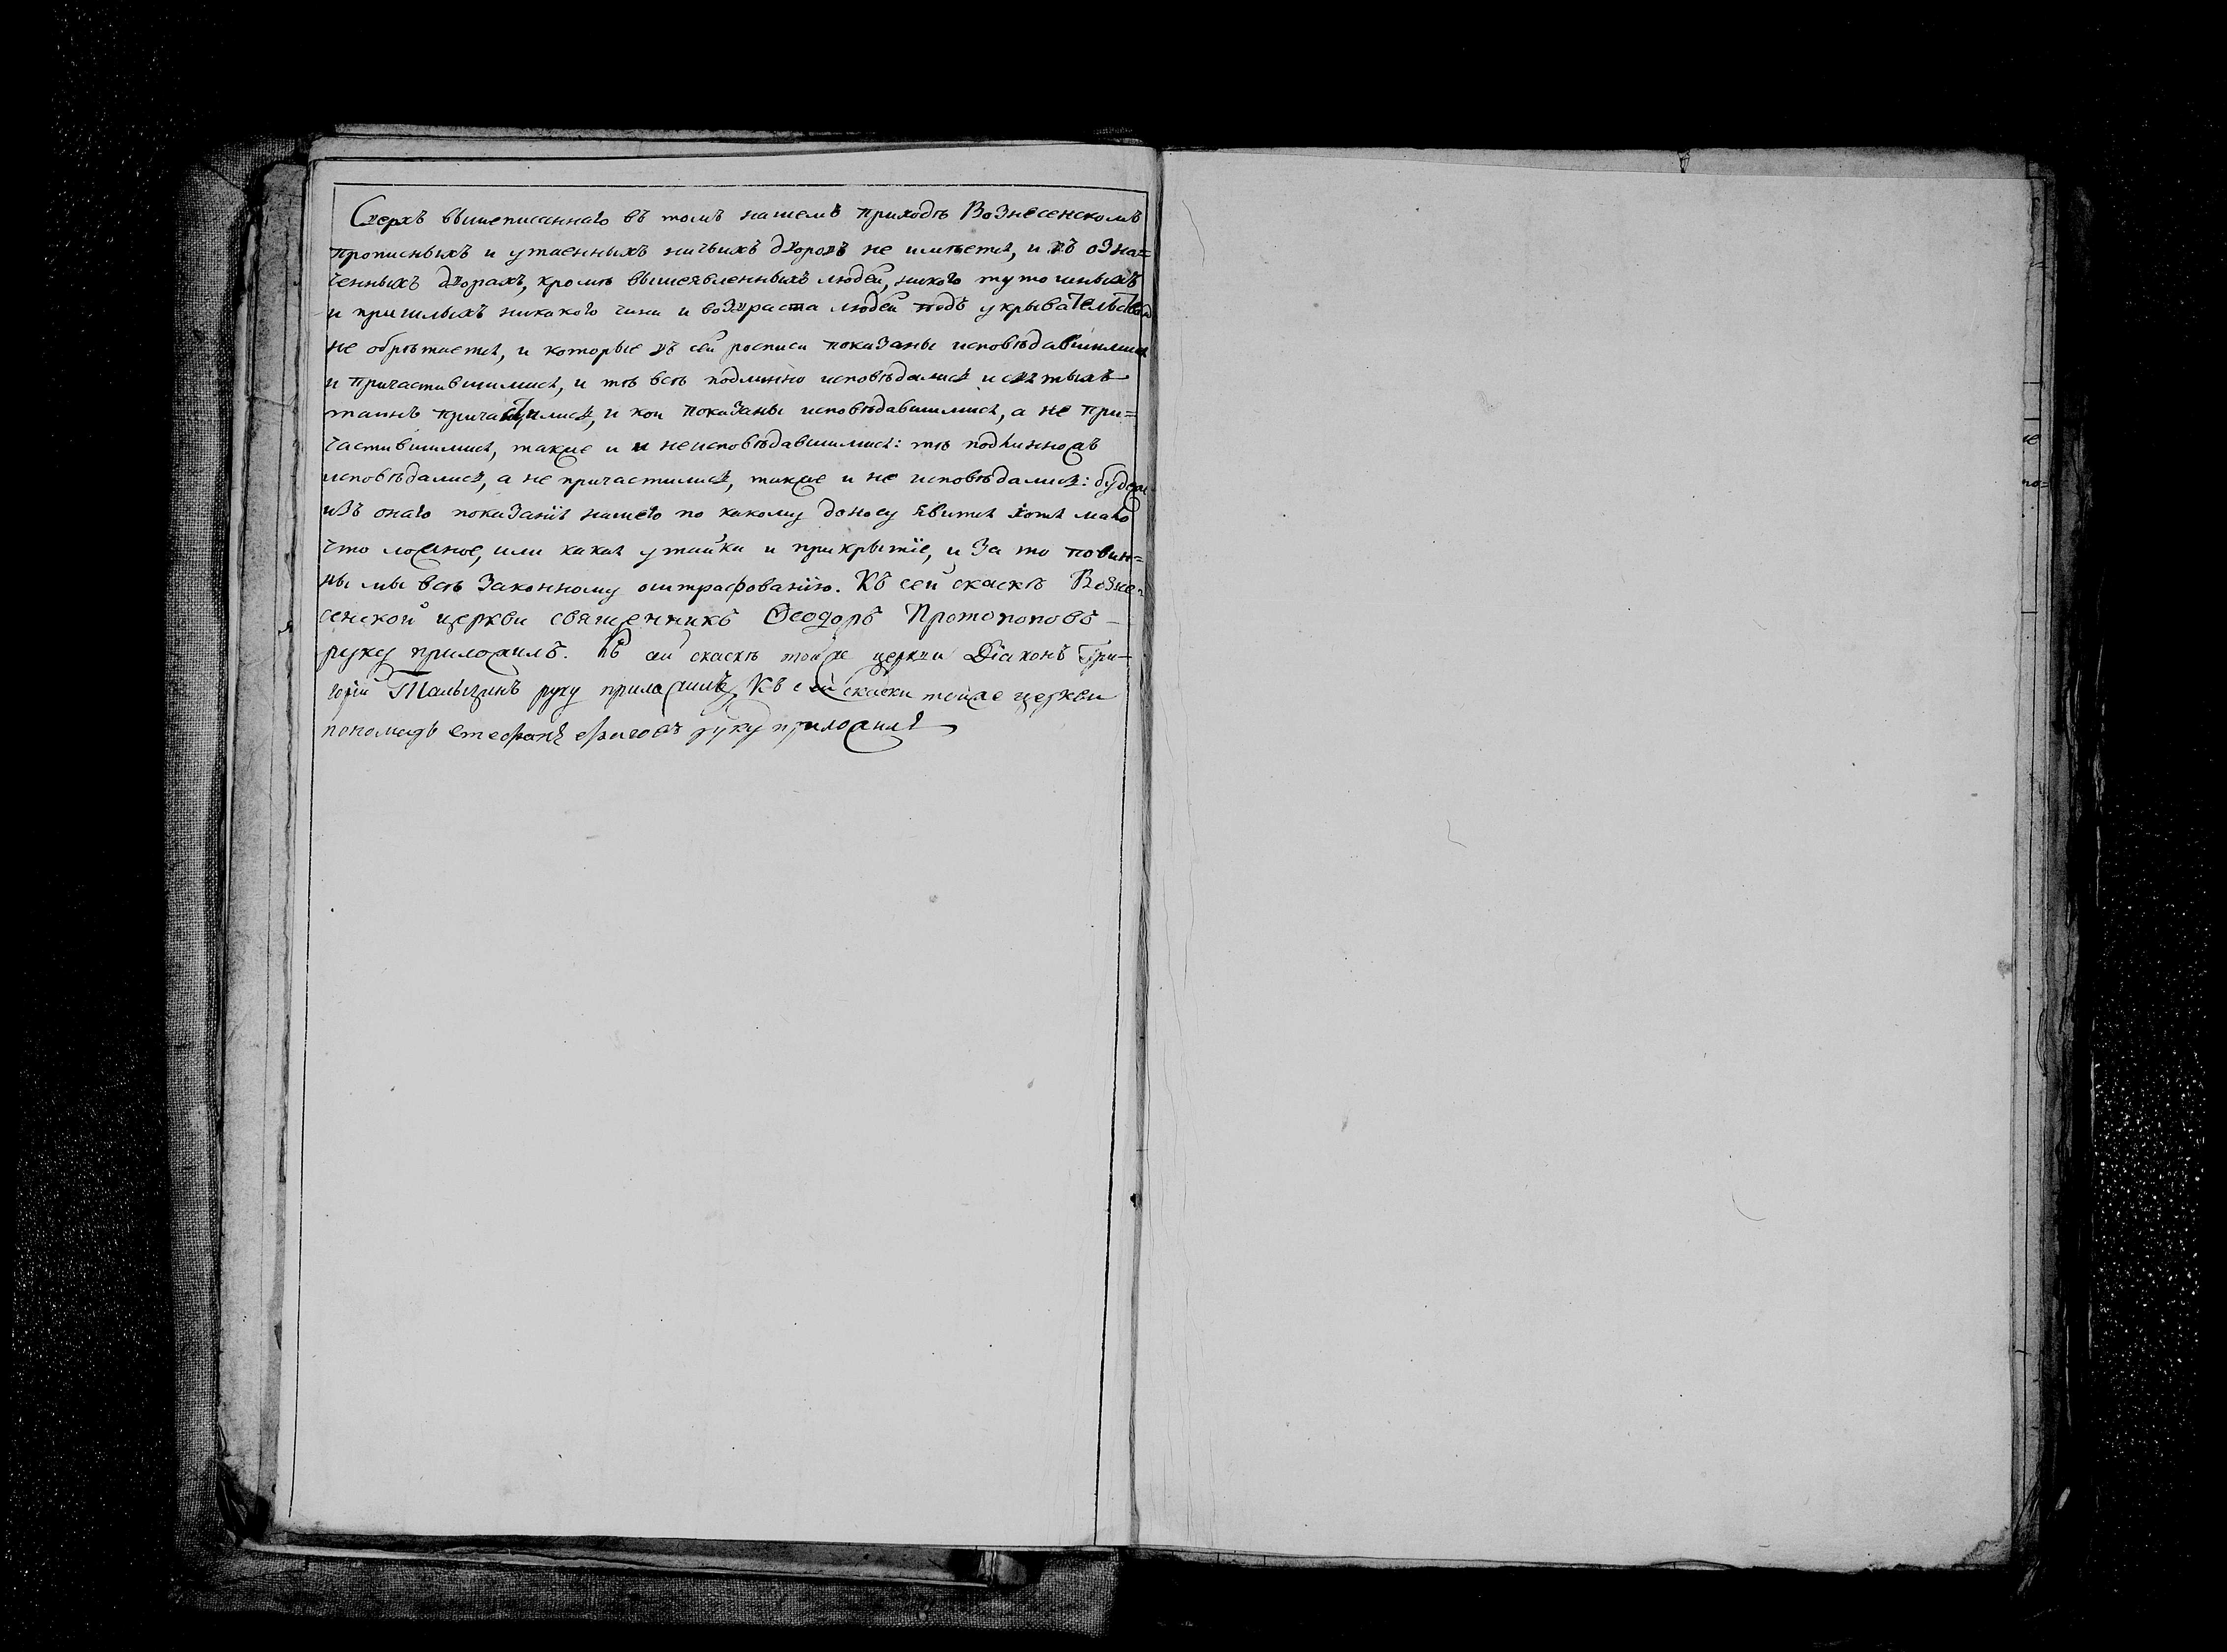 Сверхъ вышеписаннаго въ томъ нашемъ приходѣ Вознесенскомъ
прописныхъ и утаенныхъ ничьихъ дворовъ не имѣется, и въ озна=
ченныхъ дворахъ, кромѣ вышеявленныхъ людей, никого тутошныхъ
и пришлыхъ никакого чина и возраста людей подъ укрывательствомъ
не обрѣтается, и которые въ сей росписи показаны исповѣдавшимися
и причастившимися, и тѣ всѣ подлинно исповѣдались и святыхъ
таинъ причастились, и кои показаны исповѣдавшимися, а не при=
частившимися, также и и неисповѣдавшимися: тѣ подлинножъ
исповѣдались, а не причастились, также и не исповѣдались: будеже
изъ онаго показанія нашего по какому доносу явится хотя мало
что ложное, или какая утайка и прикрытіе, и за то повин=
ны мы всѣ законному оштрафованію. Къ сей скаскѣ Вознe=
сенской церкви священникъ Ѳеодоръ Протопоповъ
руку приложилъ. Къ сей скаскѣ тойже церкви Діаконъ Гри=
горій Малыгинъ руку приложилъ, Къ сей скаски тойже церкви
пономарь стефанъ руку приложилъ